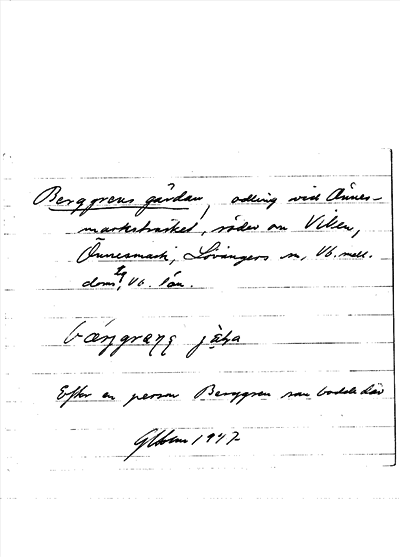 Berggrens gårdan, odling vid Önnes-
marksträsket, söder om Viken,
Önnesmark, Lövångers sn, Vb. mell.
doms tg, Vb. län.
Efter en person Berggren som bodde där
1947